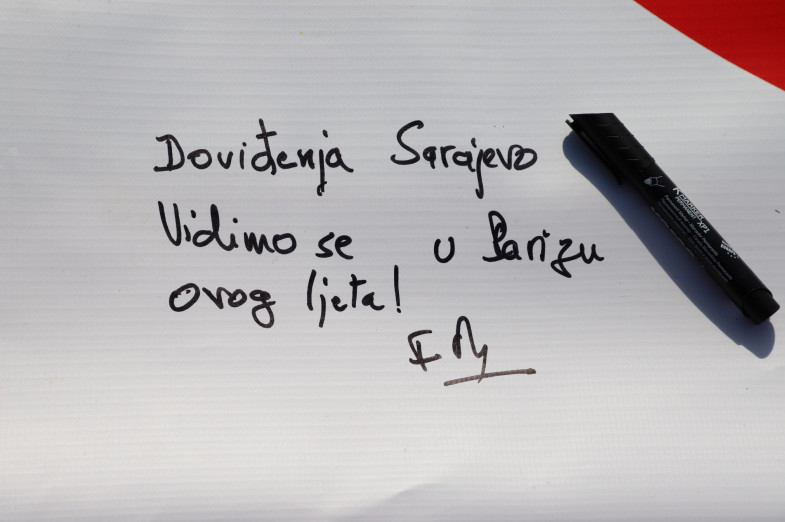 Doviđenja Sarajevo
Vidimo se u Parizu
ovog ljeta!